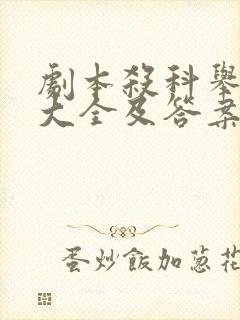 劇本殺科舉
大全及答案
蛋炒飯加蔥花